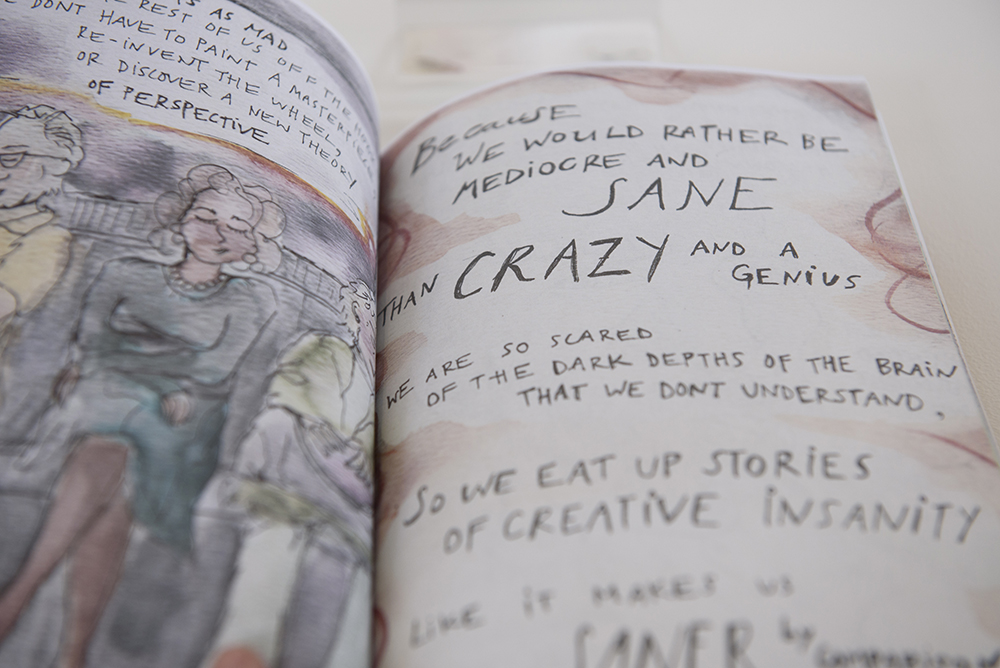 IS AS MAD
REST OF US OFF THE
DONT HAVE TO PAINT A MASTERPIECE
RE-INVENT THE WHEEL,
OR DISCOVER A NEW THEORY
OF PERSPECTIVE
Because
WE WOULD RATHER BE
MEDIOCRE AND
SANE
THAN CRAZY AND A
GENIUS
WE ARE SO SCARED
OF THE DARK DEPTHS OF THE BRAIN
THAT WE DONT UNDERSTAND,
SO WE EAT UP STORIES
OF CREATIVE INSANITY
LIKE IT MAKES US
SANER by comparison